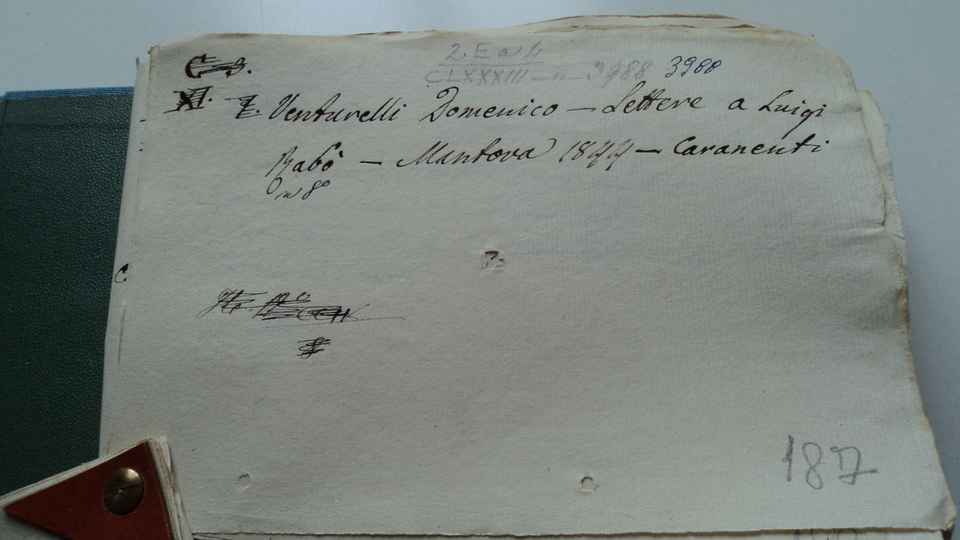 2. E a 4
CLXXXIII — n — 3988 3988
XI. Z. Venturelli Domenico — Lettere a Luigi
Babò — Mantova 1844 — Caranenti
in 8°
187